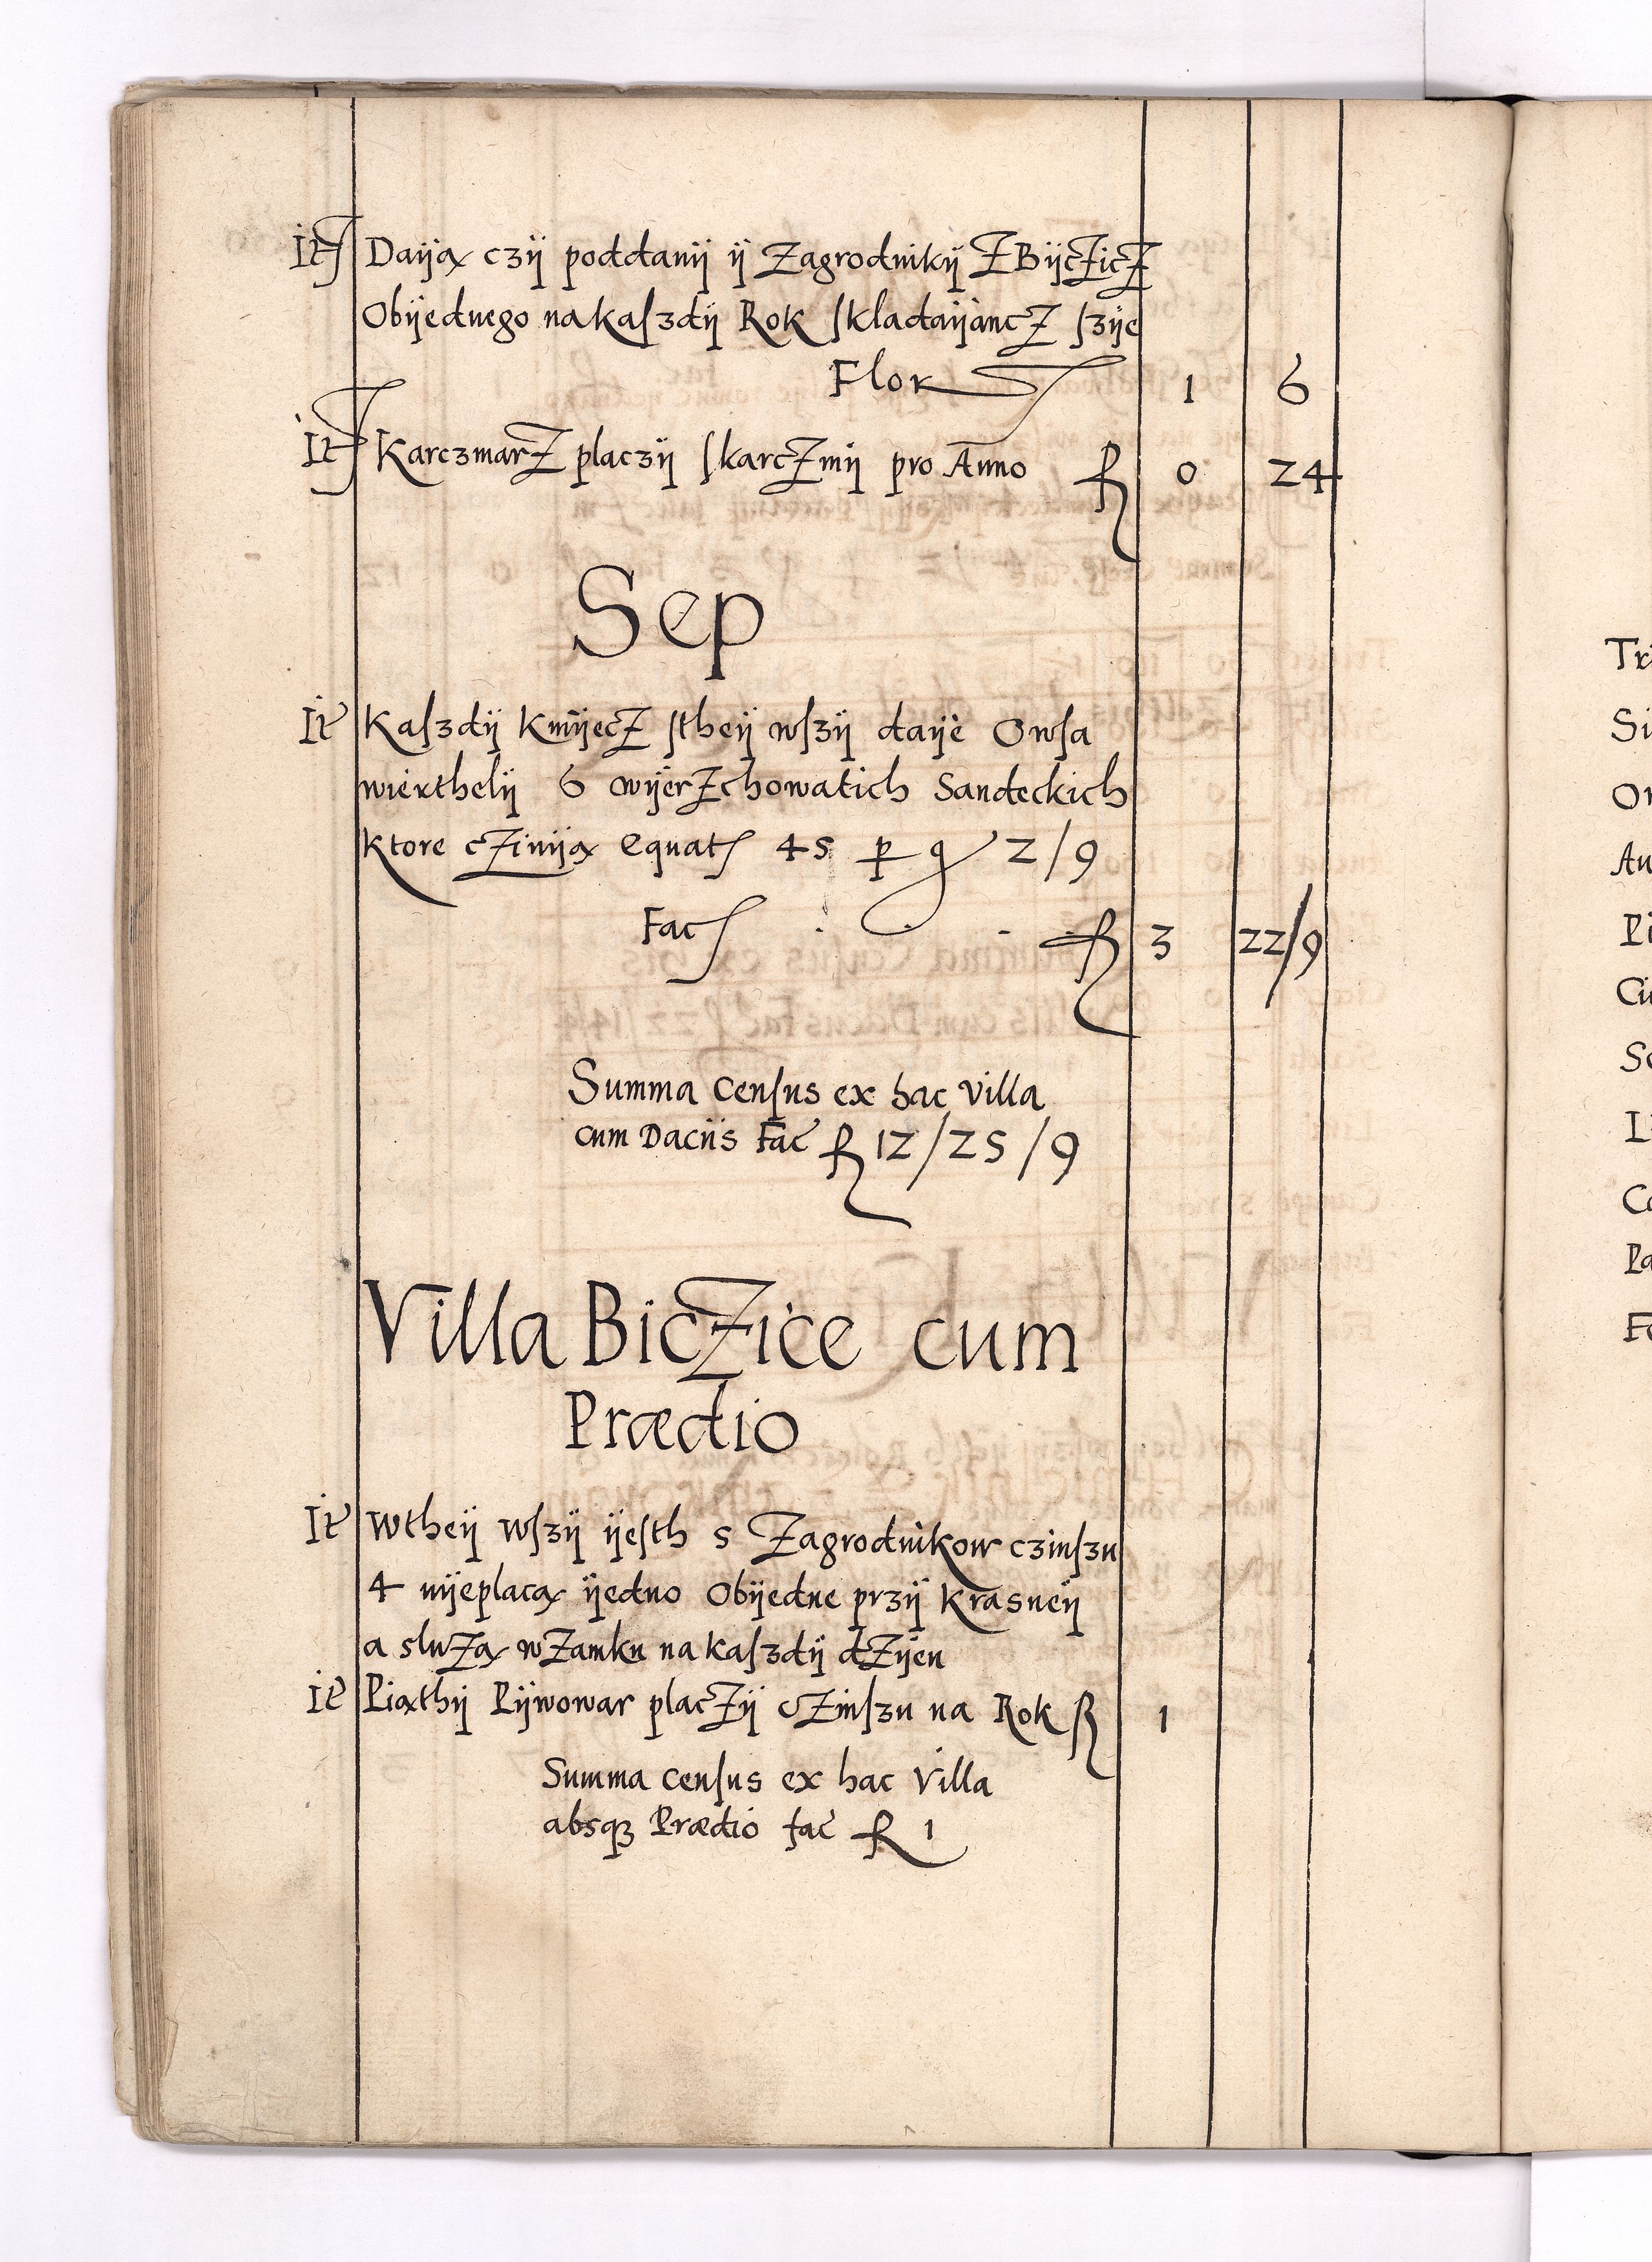 It Daÿą czÿ poddanÿ ÿ Zagrodnikÿ Z Bÿcżicz
Obÿednego na kaſzdÿ Rok ſkladaÿancz ſzÿe
Flor 1 6
It Karczmarz placzÿ ſkarczmÿ pro Anno fl 0 24
Sep
It Kaſzdÿ kmÿecz ſtheÿ wſzÿ daÿe Owſa
wierthelÿ 6 wÿerzchowatich Sandeckich
ktore cziniją equat 45 p g 2/9
Fac fl 3 22/9
Summa Cenſus ex hac villa
cum Daciis Fac fl 12/25/9
Villa Biczice cum
Prædio
It Wtheÿ Wſzÿ ÿeſth 5 Zagrodnikow czinſzu
4 nÿeplacą ÿedno Obÿedne przÿ Krasneÿ
a sluzą w Zamku na kaſzdÿ dzÿen
It Piąthÿ Pÿwowar placzÿ czinſzu na Rok fl 1
Summa cenſus ex hac Villa
absqз Prædio fac fl 1
Tr
Si
Au
Pi
Pa